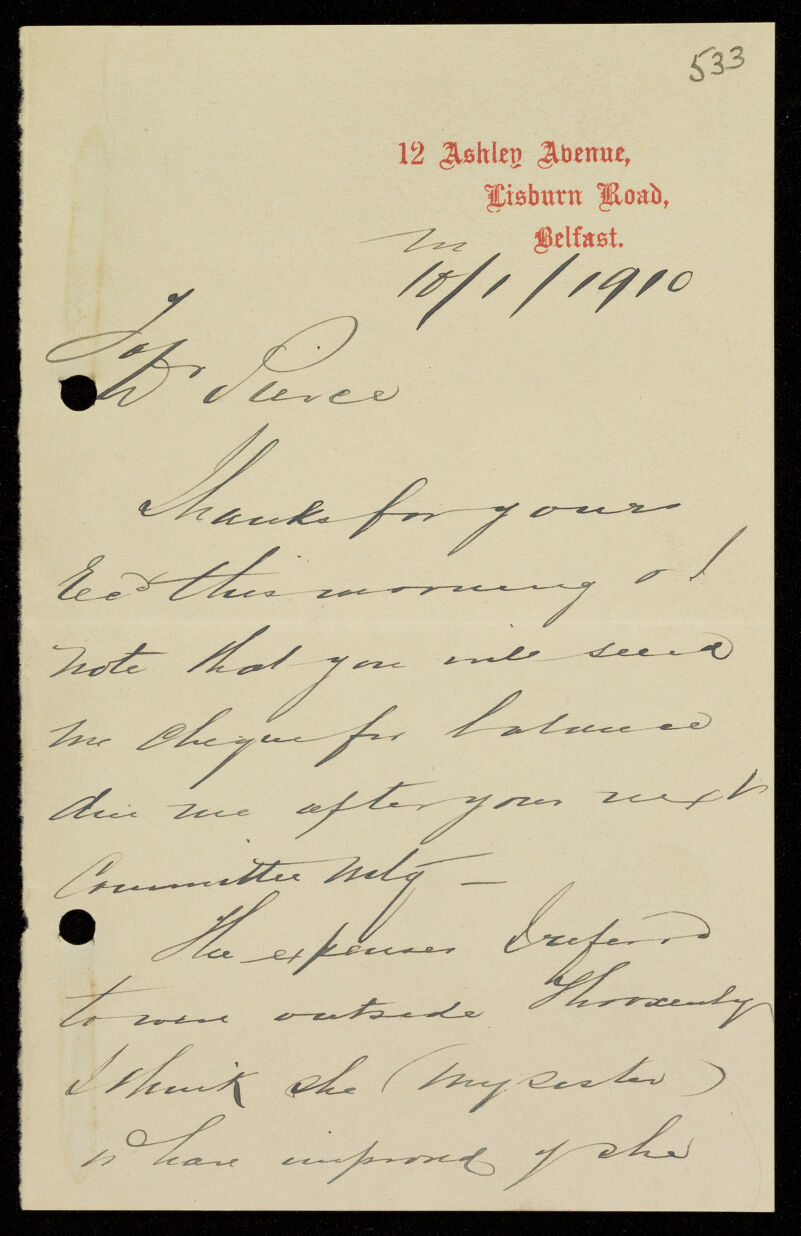 533
12 Ashley Avenue,
Lisburn Road,
Belfast.
10/1/1910
To Dr Pierce
Thanks for yours
Recd this morning & I
note that you will send
me cheque for balance
due me after your next
Committee Mtg —
The expenses I referred
to were outside
I think she (my sister)
wd have improved if she